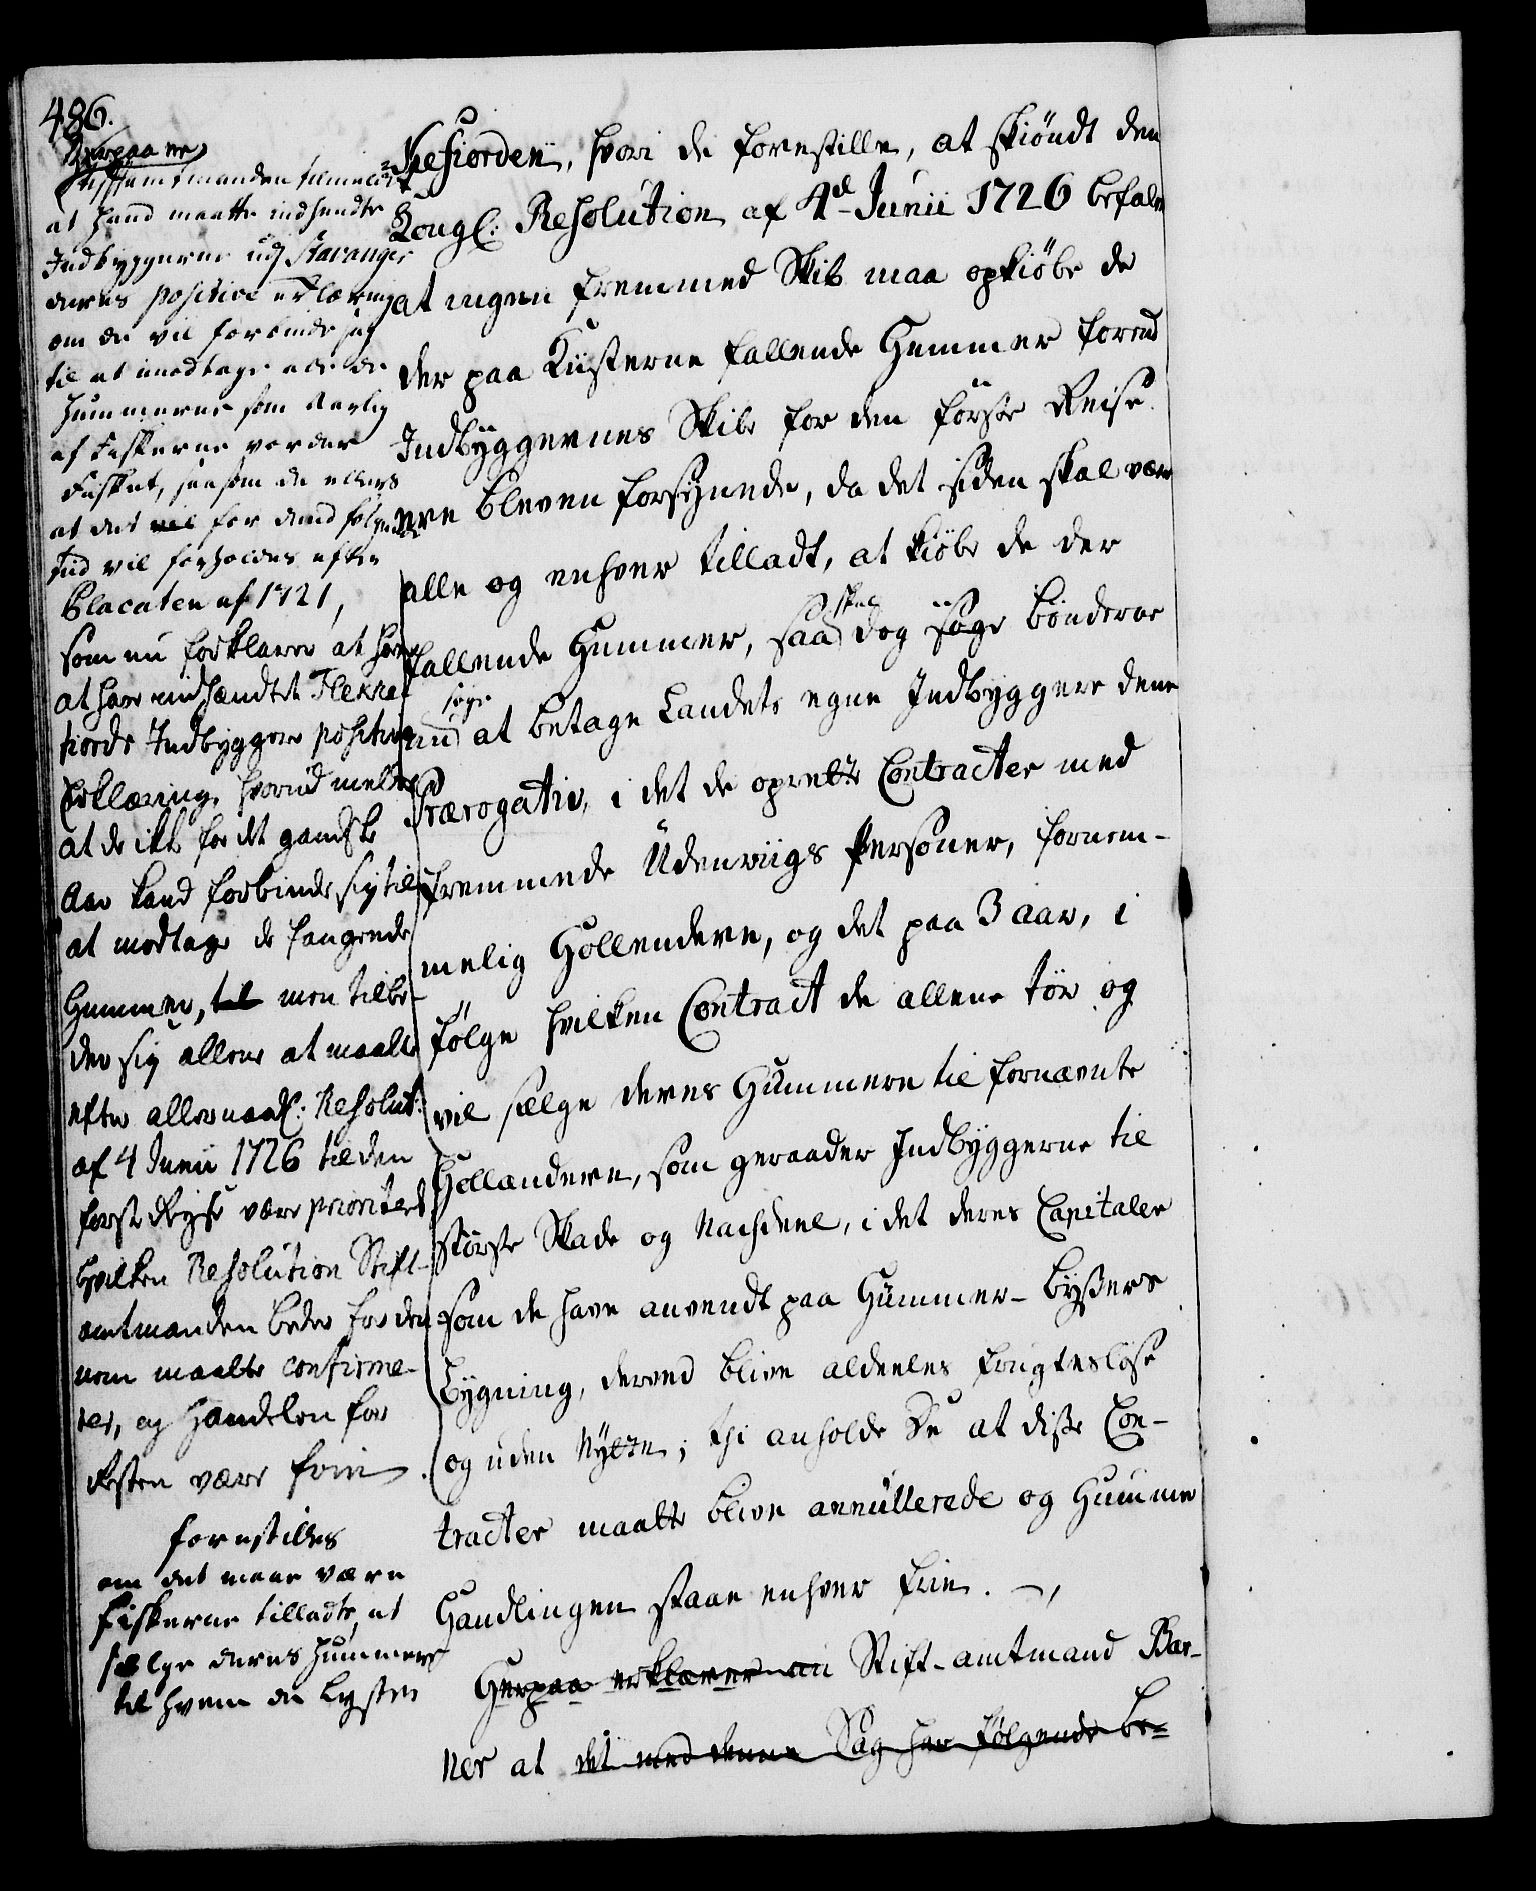 486.
Herpaa er
Stiftamtmanden tilmeldt
at hand maatte indhendte
Indbyggerne udj Stavanger
deres positive erklæring
om de vil forbinde sig
til at imodtage ade de
Hummerne som aarlig
af Fiskerne vorder
Fisket, saasom de ellers
at det vil for dend følgende
tid vil forholdes efter
Placaten af 1721,
som nu forklarer at have
at have indhændtet Flekke-
fiords Indbyggere positive
Erklæring, hvorud meldes
at de ikke for det gandske
Aar kand forbinde sig til
at modtage de fangende
Hummer, men tilby-
der sig allene at maatte
efter allernaad: Resolut:
af 4 Junii 1726 til den
første Reyse være prioriterede
hvilken Resolution Stift-
amtmanden beder for dem
maatte confirme-
res, og Handelen for
Resten være frie.
forestilles
om det maae være
Fiskerne tilladt, at
sælge deres Hummere
til hvem de lyster
Kefiorden, hvori de forestille, at skiöndt den
Kongl: Resolution af 4d Junii 1726 befaler
at ingen fremmed Skib maa opkiöbe de
der paa Küsterne fallende Hummer forend
Indbyggernes Skibe for den förste Reise
ere bleven forsynede, da det siden skal være
alle og enhver tilladt, at kiöbe de der
fallende Hummer, saa skal dog söge Bönderne
nu söge at betage Landets egne Indbyggere denne
Prærogativ, i det de oprette Contracter med
fremmede Udenriigs Personer, fornem-
melig Hollendere, og det paa 3 aar, i
fölge hvilken Contract de allene tör og
vil sælge deres Hummere til fornævnte
Hollændere, som geraader Indbyggerne til
störste Skade og Nachdeel, i det deres Capitaler
som de have anvendt paa Hummer-Bysßers
Bygning, derved blive aldeeles frugteslöse
og uden Nytte; thi anholde De at disse Con-
tracter maatte blive annullerede og Hummer
Handlingen staae enhver frie.
Herpaa erklærer nu Stift-amtmand Bær-
ner at det med denne Sag har fölgende be-